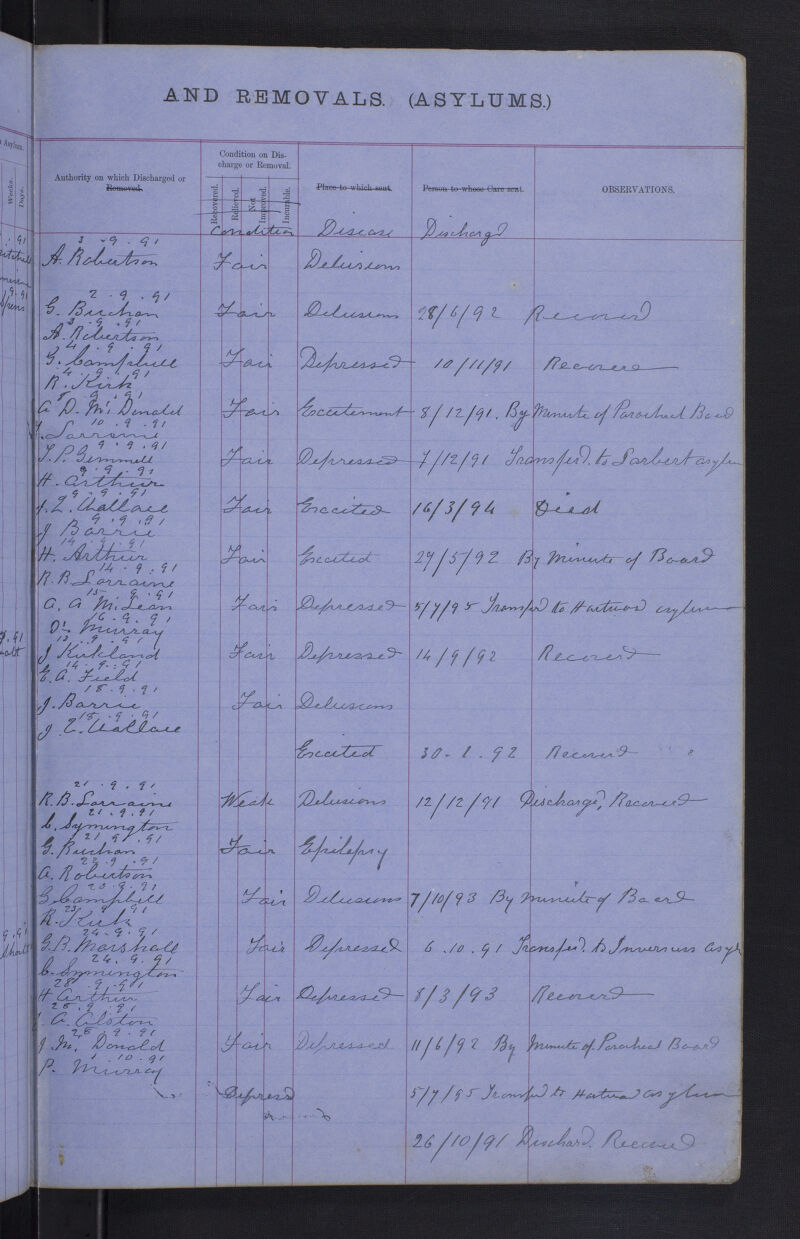 AND REMOVALS. (ASYLUMS.)
Asylum.
Weeks.
Days.
Authority on which Discharged or
Removed.
Condition on Dis-
charge or Removal.
Recovered.
Relieved.
Not
Improved.
Incurable.
Place to which sent.
Person to whose Care sent.
OBSERVATIONS.
Condition Disease Discharg'd
3.9.91
A. Robertson Fair Delusions
2.9.91
G. Buchan Fair Delusions 28/6/92 Recovered
3.9.91
A. Robertson
4.9.91
G. Campbell Fair Depressed 10/11/91 Recovered
4.9.91
R. Kirk
5.9.91
A D. Mc Donald Fair Excitement 8/12/91. By Minute of Parochial Board
10.9.91
Lorraine
9.9.91
T. P. Gemmell Fair Depressed 7/12/91 Transferd. to Larbert asylum
9.9.91
H. Arthur
9.9.91
J. L. Wallace Fair Excited 16/3/94 Died
9.9.91
J Barrie
14.9.91
H. Arthur Fair Excited 27/5/92 By Minute of Board
14.9.91
R. B. Lorraine
15.9.91
A. A McLean Fair Depressed 5/7/95 Transfd to Hartwood asylum
16.9.91
Dr. Murray
13.9.91
J Kirkland Fair Depressed 14/9/92 Recovered
14.9.91
E. A. Field
18.9.91
J. Barrie Fair Delusions
18.9.91
J. L. Wallace
Excited 92 Recovered
21.9.91
R. B. Lorraine Weak Delusions 12/12/91 Discharged, Recovered
21.9.91
C. Symington
21.9.91
G. Buchan Fair Epilepsy
22.9.91
A. Robertson
23.9.91
G Campbell Fair Delusions 7/10/93 By minute of Board
23.9.91
R. Kirk
24.9.91
G. B. Marshall Fair Depressed 6.10.91 Transferd. to Inverness asyl
24.9.91
C. Symington
28.9.91
H Arthur Fair Depressed 8/3/93 Recovered
25.9.91
A. Alston
28.9.91
J. Mc Donald Fair Depressed 11/6/92 By Minute of Parochial Board
1.10.91
P. Murray
Depressd 5/7/95 Transfd to Hartwood asylum
26/10/91 Dischard. Recovered